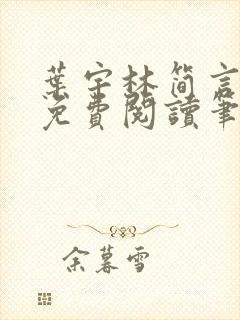 葉宇林简言
免費閱讀筆
余暮雪